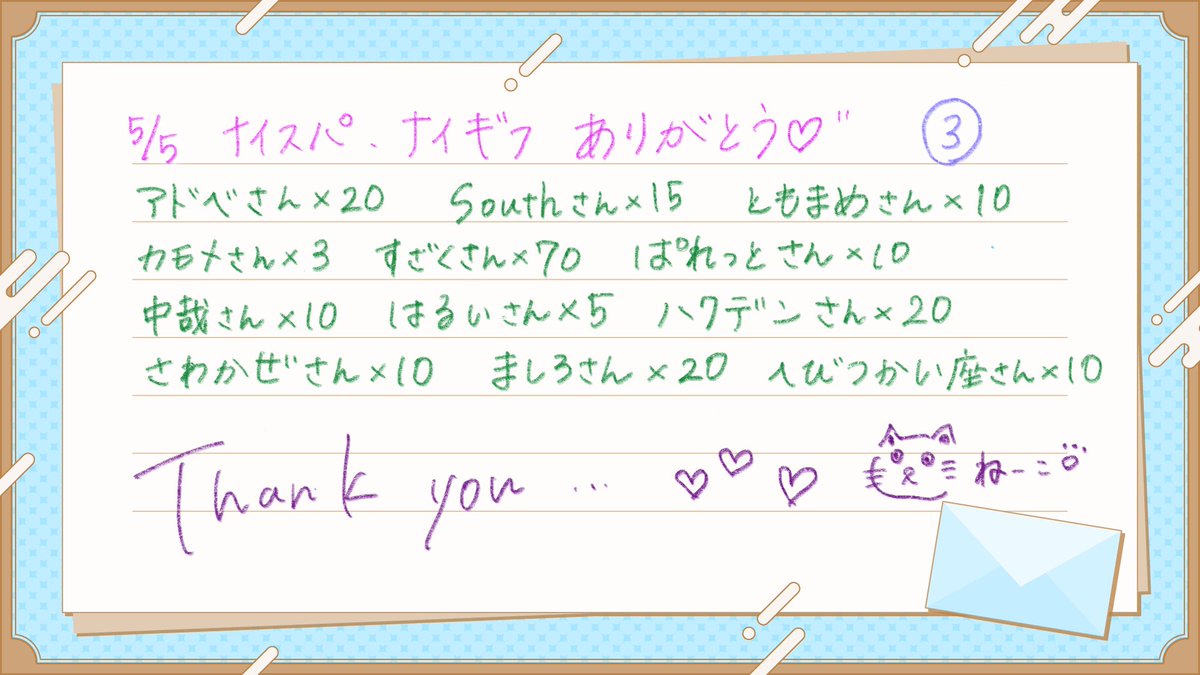 5/5 ナイスパ、ナイギフ ありがとう♡ ③
アドベさん×20 Southさん×15 ともまめさん×10
カモメさん×3 すざくさん×70 ぱれっとさん×10
中哉さん×10 はるいさん×5 ハクデンさん×20
さわかぜさん×10 ましろさん×20 へびつかい座さん×10
Thank you … ♡♡♡ ねーこ